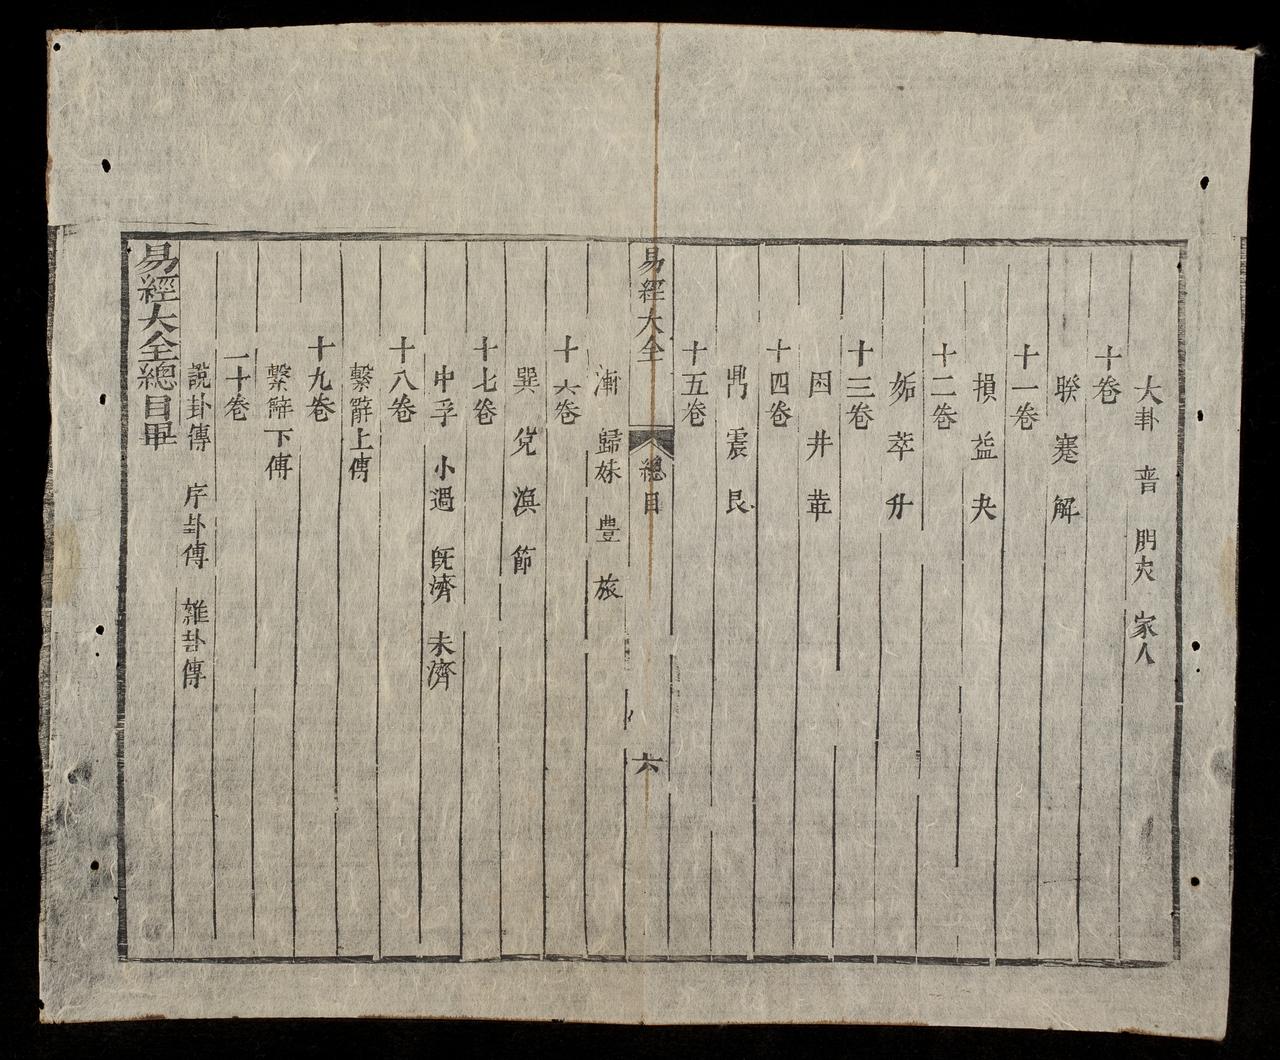 大卦 晋 明夷 家人
十卷
睽 蹇 解
十一卷
損 益 夬
十二卷
姤 萃 升
十三卷
困 井 革
十四卷
鼎 震 艮
十五卷
易經大全 總目 六
漸 歸妹 豊 旅
十六卷
巽 兌 渙 節
十七卷
中孚 小過 旣濟 未濟
十八卷
繫辭上傳
十九卷
繫辭下傳
二十卷
說卦傳 序卦傳 雜卦傳
易經大全總目畢